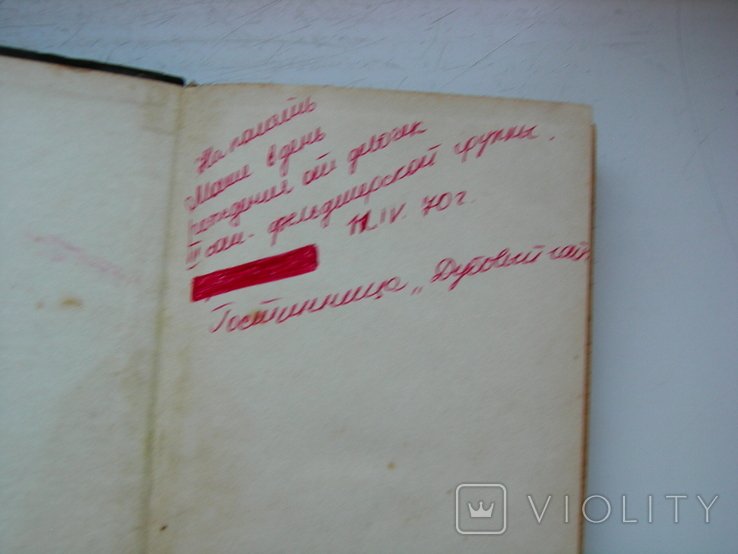 На память
Маше в день
рождения от девочек
III сан. фельдшерской группы.
11.IV.70г.
Гостинница „Дубовый гай
VIOLITY